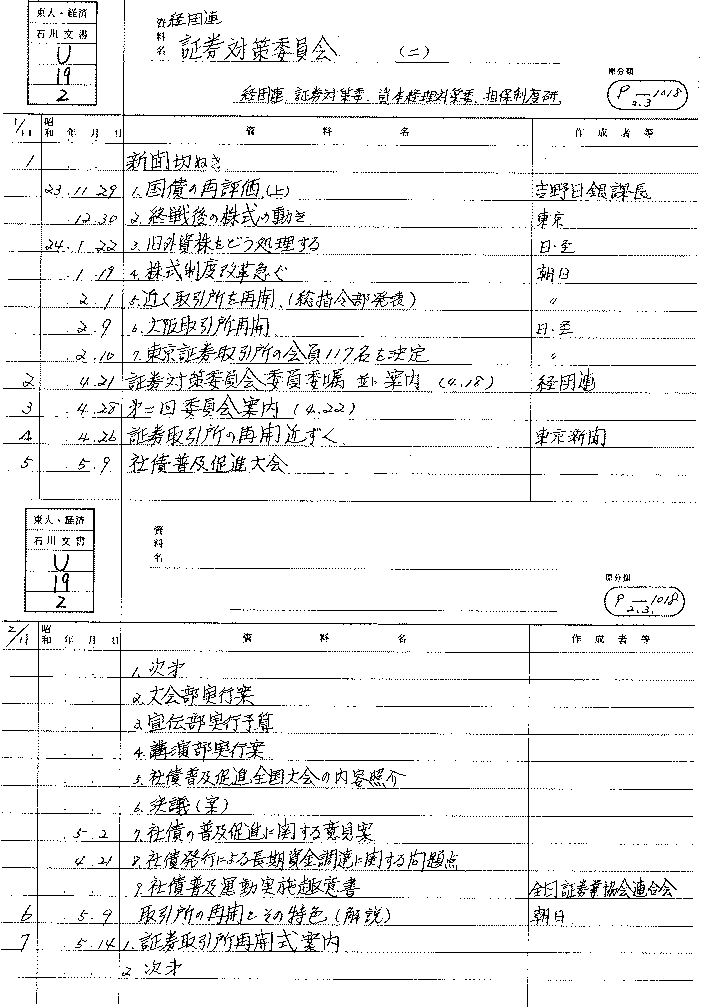 東大・経済
石川文書
U
19
2
資料名 経団連
証券対策委員会 (二)
経団連 証券対策委、資本経理対策委、担保制度研
原分類
P-1018
2.3
1/11 昭和 年 月 日 資料名 作成者等
1 新聞切ぬき
23.11.29 1.国債の再評価(上) 吉野日銀課長
12.30 2.終戦後の株式の動き 東京
24.1.22 3.旧外資株をどう処理する 日・至
1.19 4.株式制度改革急ぐ 朝日
2.1 5.近く取引所を再開(総指令部発表) 〃
2.9 6.大阪取引所再開 日・至
2.10 7.東京証券取引所の会員117名を決定 〃
2 4.21 証券対策委員会委員委嘱 並に案内 (4.18) 経団連
3 4.28 オ二回委員会案内 (4.22)
4 4.26 証券取引所の再開近ずく 東京新聞
5 5.9 社債普及促進大会
東大・経済
石川文書
U
19
2
資料名
原分類
P-1018
2.3.
2/11 昭和 年 月 日 資料名 作成者等
1.次オ
2.大会部実行案
3.宣伝部実行予算
4.講演部実行案
5.社債普及促進全国大会の内容照介
6.決議(案)
5.2 7.社債の普及促進に関する意見案
4.21 8.社債発行による長期資金調達に関する問題点
9.社債普及運動実施趣意書 全国証券業協会連合会
6 5.9 取引所の再開とその特色(解説) 朝日
7 5.14 1.証券取引所再開式案内
2.次オ